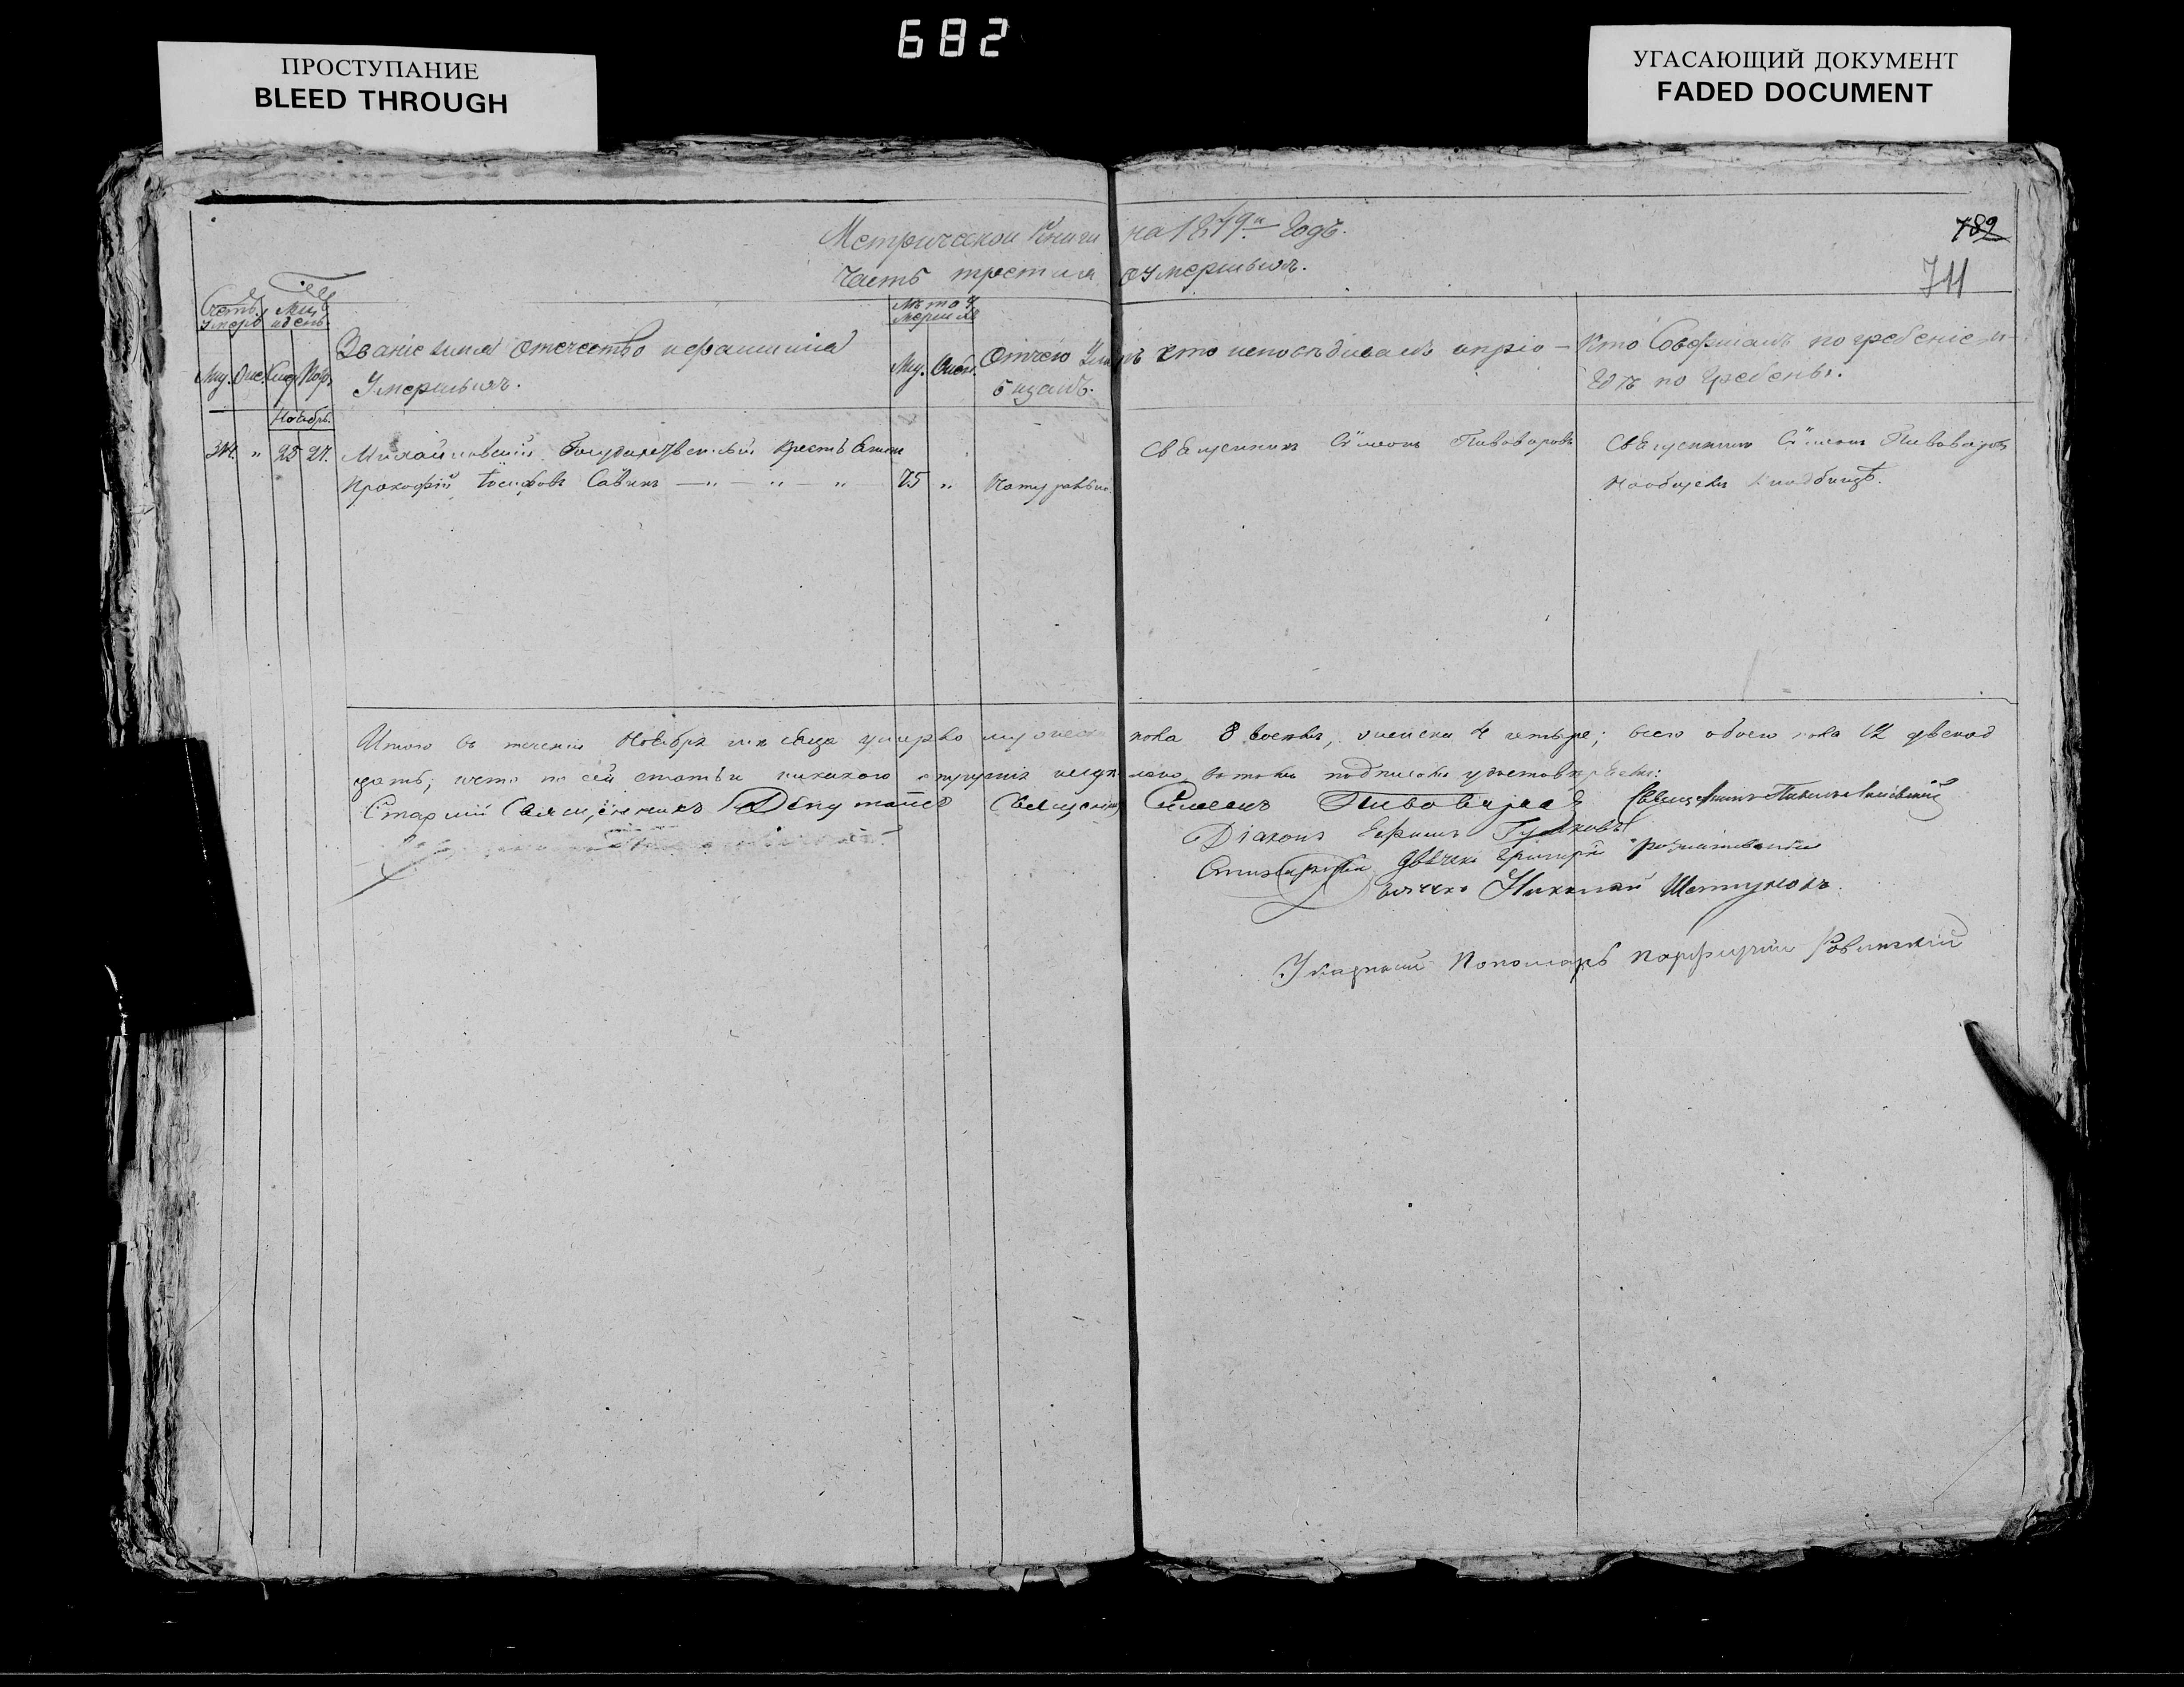 682
ПРОСТУПАНИЕ
BLEED THROUGH
УГАСАЮЩИЙ ДОКУМЕНТ
FADED DOCUMENT
Метрической Книги на 1849й Годъ.
782
Часть третия о Умершихъ.
711
Счетъ Умерш
Мцъ и день
Лѣта Умершаго
Му. Жен. Смер Погр.
Званіе имя отечество и фамилия Умершихъ.
Му. Жен.
Отчего Умеръ
Кто исповѣдывалъ и пріобщалъ.
Кто Совершалъ погребеніе и гдѣ погребены.
Ноябрь.
34. " 25 27. Михайловский Государственный крестьянин
Прокофій Іосифовъ Савинъ — " — " — " 75 " Натурально.
Священникъ Сѵмеонъ Пивоваровъ
Священникъ Сѵмеонъ Пивоваровъ
На общемъ кладбищѣ.
Итого въ теченіи Ноября мѣсяца умерло мужеска пола 8 восемь, женска 4 четыре; всего обоего пола 12 двенад
цать; что по сей статьи никакого упущенія недѣлано въ томъ подписомъ удостовѣряемъ:
Старший Священникъ Депутатъ Священникъ Симеонъ Пивоваровъ Священникъ
Діаконъ Ефимъ Гудковъ
Стихарный дьячекъ Григорій
дьячекъ Николай Шетуховъ.
Указный Пономарь Порфирий Ровинский